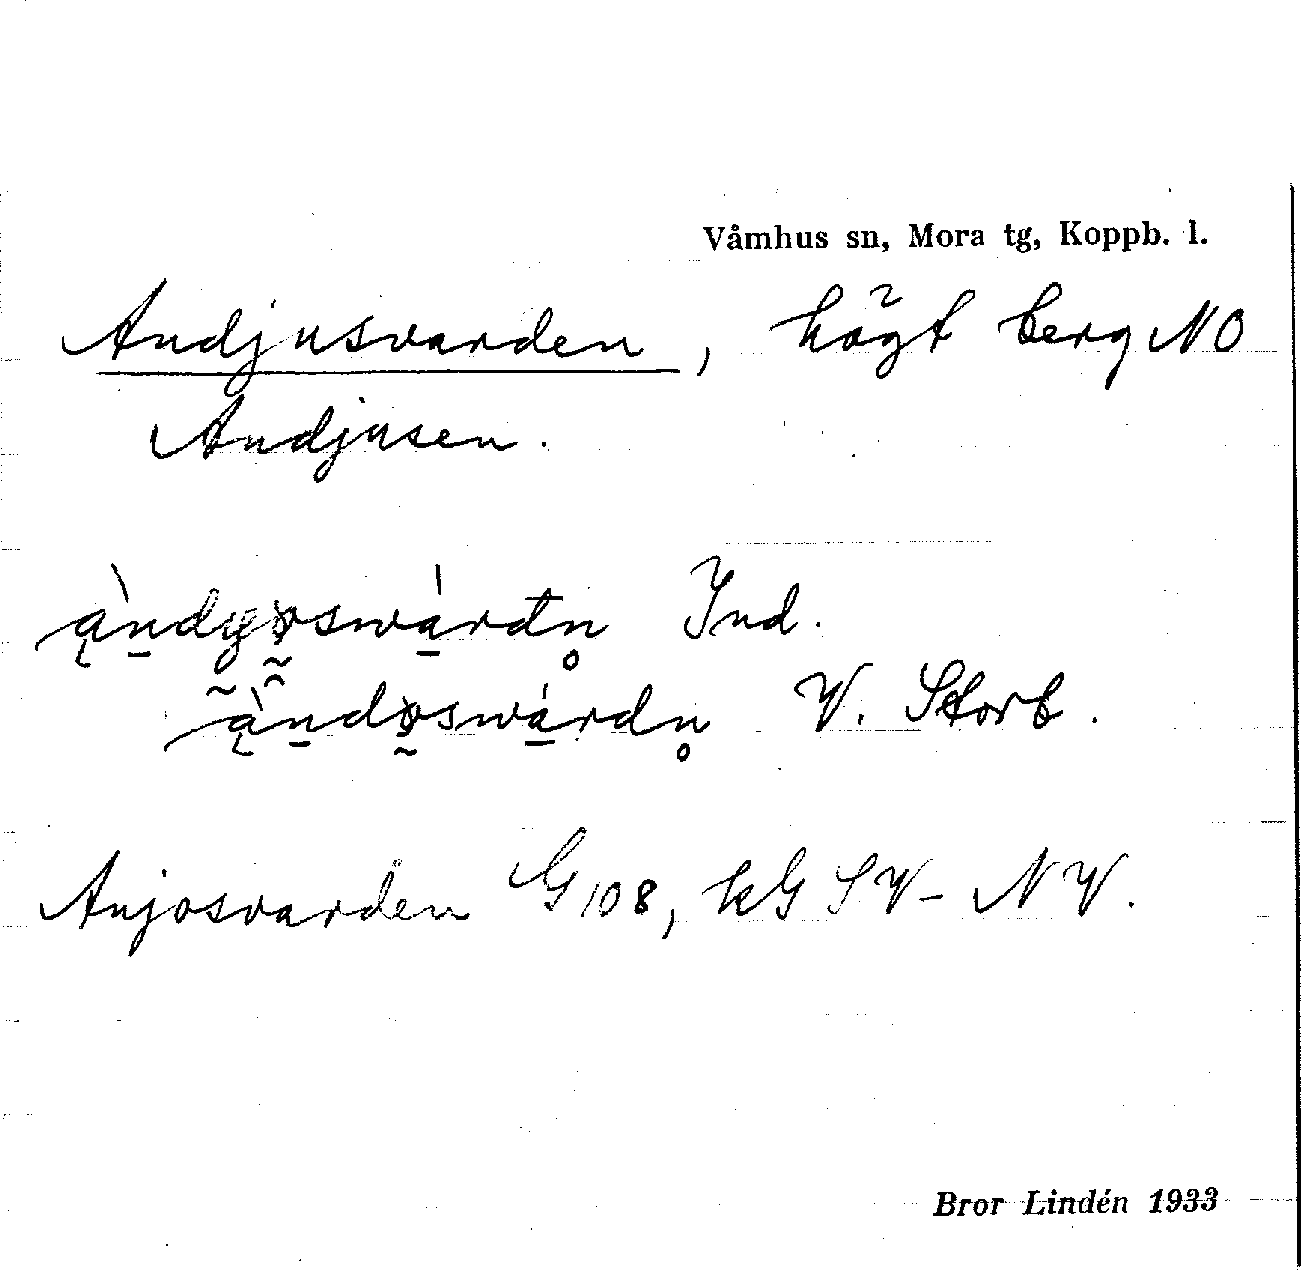 Våmhus sn, Mora tg, Koppb. l.
Andjusvarden, högt berg NO
Andjusen.
Ind.
V. Storb.
Anjosvarden G 108, kG SV-NV.
Bror Lindén 1933